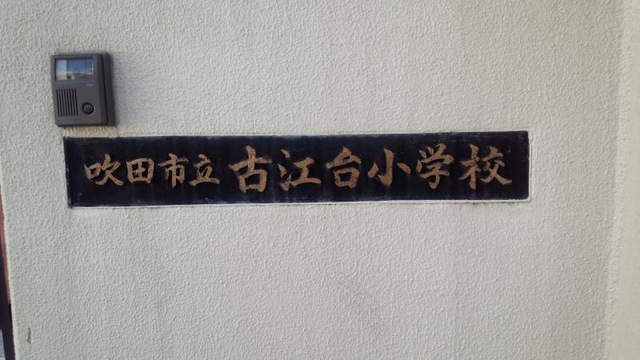 吹田市立古江台小学校